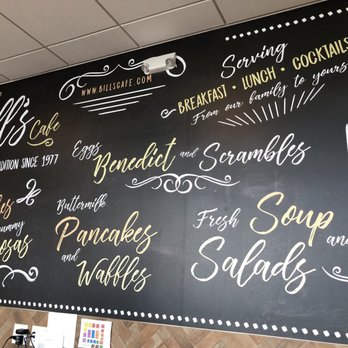 WWW.BILLSCAFE.COM
Cafe
SINCE 1977
Serving
BREAKFAST • LUNCH • COCKTAILS
From our family to yours
Eggs
Benedict and Scrambles
Buttermilk
Pancakes
and
Waffles
Fresh Soup
and
Salads